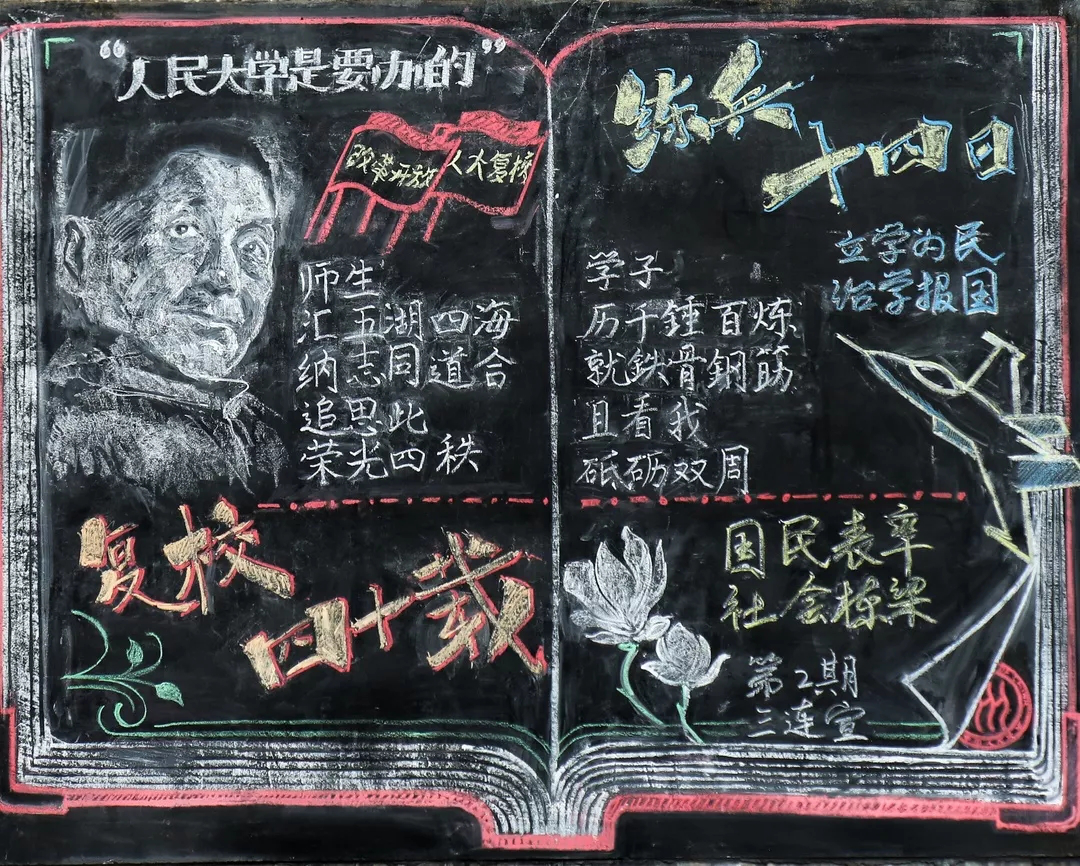 “人民大学是要办的”
改革开放
人大复校
师生
汇五湖四海
纳志同道合
追思此
荣光四秩
复校
四十载
练兵
十四日
立学为民
治学报国
学子
历千錘百炼
就鉄骨鋼筋
且看我
砥砺双周
国民表率
社会栋梁
第2期
三连宣